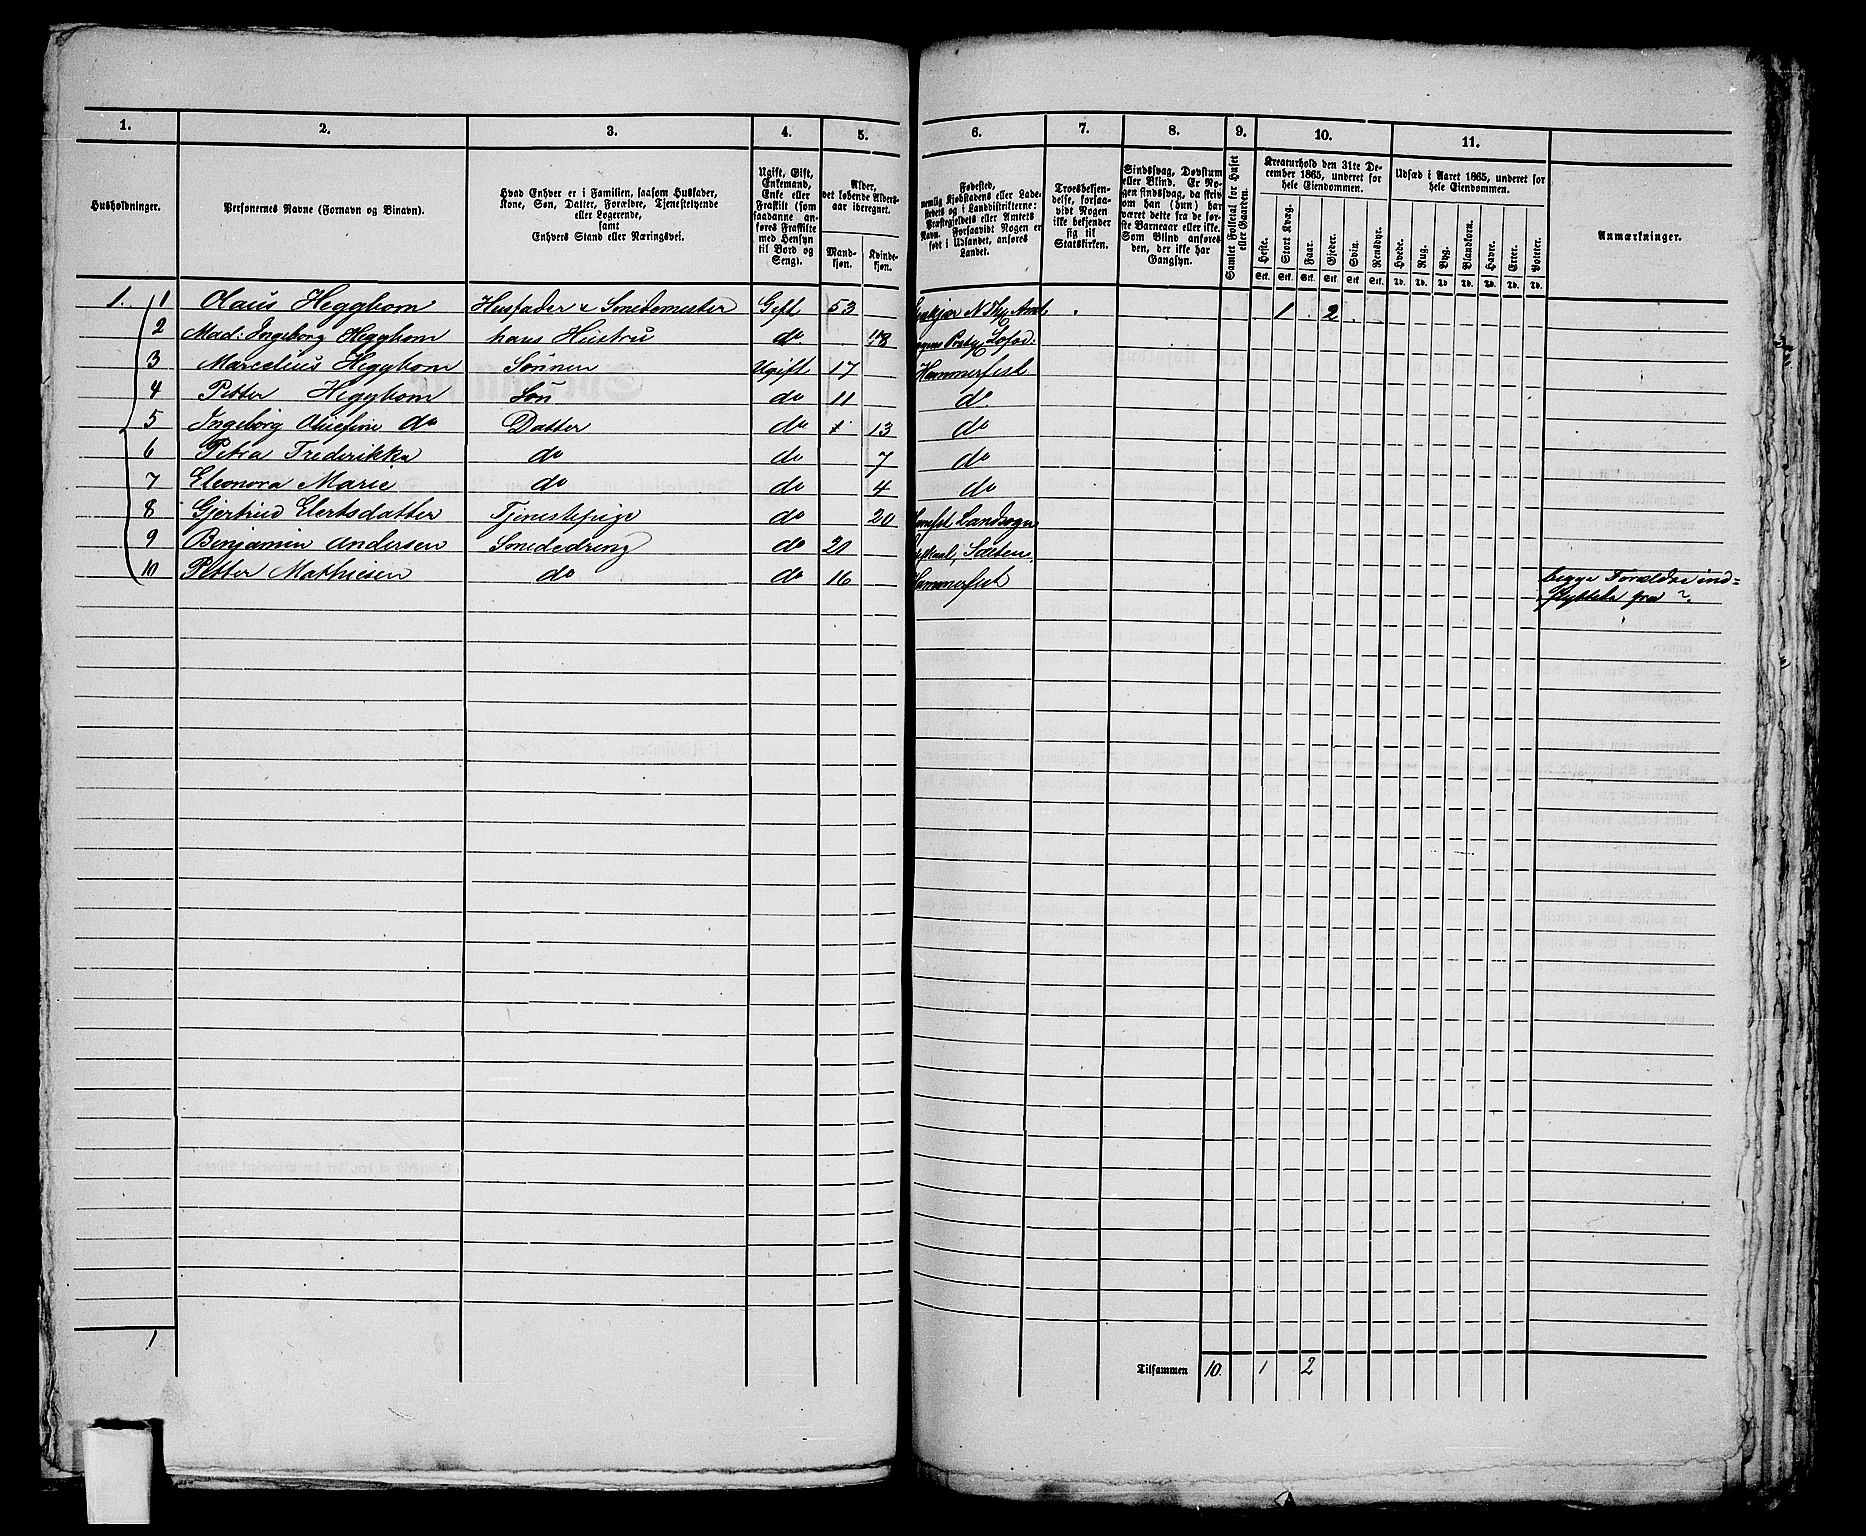 1. 2. 3. 4. 5. 6. 7. 8. 9. 10. 11.
Husholdninger.
Personernes Navne (Fornavn og Binavn).
Hvad Enhver er i Familien, saasom Husfader,
Kone, Søn, Datter, Forældre, Tjenestetyende
eller Logerende,
samt
Enhvers Stand eller Næringsvei.
Ugift, Gift,
Enkemand,
Enke eller
Fraskilt (som
saadanne an-
føres Fraskilte
med Hensyn
til Bord og
Seng).
Alder,
det løbende Alders-
aar iberegnet.
Mand-
kjøn.
Kvinde-
kjøn.
Fødested,
nemlig Kjøbstadens eller Lade-
stedets og i Landdistrikterne:
Præstegjeldets eller Amtets
Navn. Forsaavidt Nogen er
født i Udlandet, anføres
Landet.
Troesbekjen-
delse, forsaa-
vidt Nogen
ikke bekjender
sig til
Statskirken.
Sindssvag, Døvstum
eller Blind. Er No-
gen sindssvag, da skriv
om han (hun) har
været dette fra de før-
ste Barneaar eller ikke.
Som Blind anføres
den, der ikke har
Gangsyn.
Samlet Folketal for Huset
eller Gaarden.
Kreaturhold den 31te De-
cember 1865, underet for
hele Eiendommen.
Heste. Stort Kvæg. Faar. Gjeder. Svin. Rensdyr.
Stk. Stk. Stk. Stk. Stk. Stk.
Udsæd i Aaret 1865, underet for
hele Eiendommen.
Hvede. Rug. Byg. Blandkorn. Havre. Erter. Poteter.
Td. Td. Td. Td. Td. Td. Td.
Anmærkninger.
1. 1 Olaus Heggbom Husfader & Smedemester Gift 53 1 2
2 Mad: Ingeborg Heggbom hans Hustru do 48 Lofod.
3 Marcelius Heggbom Sønnen Ugift 17 Hammerfest
4 Petter Heggbom Søn do 11 do
5 Ingeborg Olsefine do Datter do 13 do
6 Petra Frederikka do do 7 do
7 Eleonora Marie do do 4 do
8 Gjertrud Elertsdatter Tjenestepige do 20 Landsogn
9 Benjamin Andersen Smededreng do 21
10 Petter Mathiesen do do 16 Hammerfest begge Forældre ind-
flyttede fra ?.
1
Tilsammen 10. 1 2